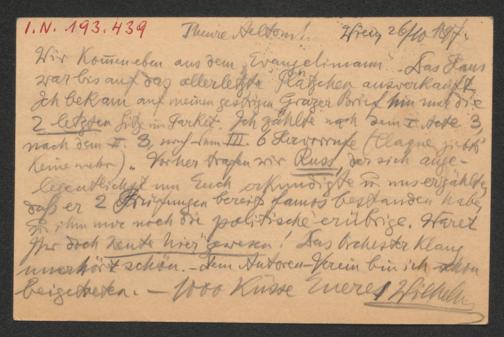 I.N. 193.439
Theure Aeltern! Wien 26/10 1897.
Wir kommen eben aus dem "Evangelimann". Das Haus
war bis auf das allerletzte Plätzchen ausverkauft,
Ich bekam auf meinen gestrigen Grazer Brief hin nur die
2 letzten Sitze im Parket. Ich zählte nach dem I. Acte 3,
nach dem II. 3, nach dem III. 6 Hervorrufe (Claque gibt's
keine mehr). Vorher trafen wir Russ, der sich ange-
legentlichst um Euch erkundigte u. uns erzählte,
daß er 2 Prüfungen bereits famos bestanden habe,
u. ihm nur noch die politische erübrige. Waret
Ihr doch heute hier gewesen! Das Orchester klang
unerhört schön. - Dem Autoren-Verein bin ich schon
beigetreten. - 1000 Küsse Eueres Wilhelm